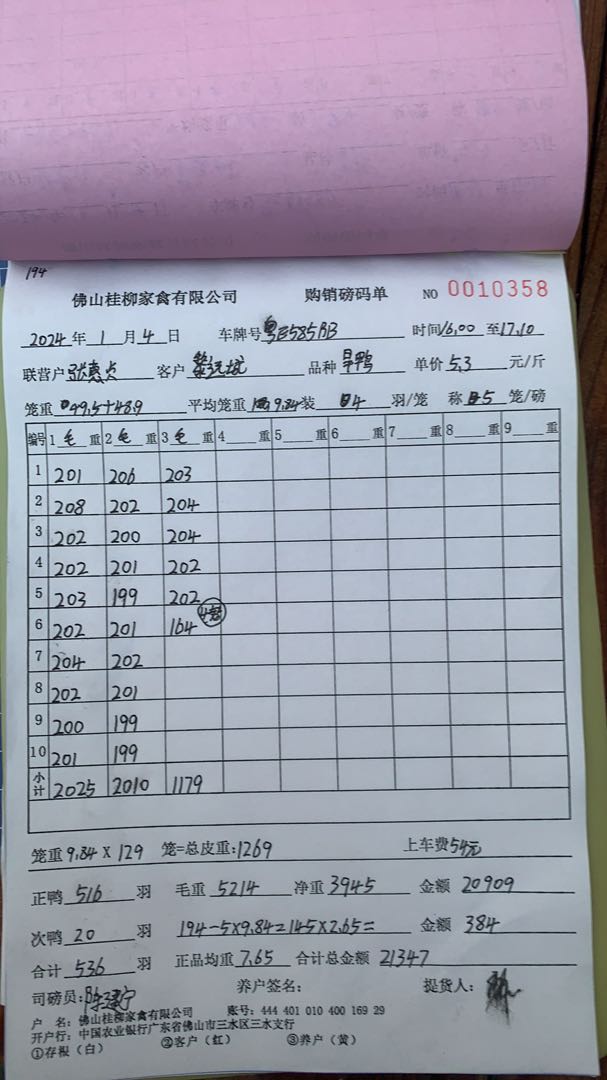 194
佛山桂柳家禽有限公司 购销磅码单 NO 0010358
2024年 1月 4日 车牌号 粤E585BB 时间 16.00 至 17.10
联营户 张 点 客户 品种 旱鸭 单价 5.3 元/斤
笼重 49.5+48.9 平均笼重 9.84 装 4 羽/笼 称 5 笼/磅
编号 1 毛 重 2 毛 重 3 毛 重 4 重 5 重 6 重 7 重 8 重 9 重
1 201 206 203
2 208 202 204
3 202 200 204
4 202 201 202
5 203 199 202
6 202 201 164 4笼
7 204 202
8 202 201
9 200 199
10 201 199
小计 2025 2010 1179
笼重 9.84 X 129 笼=总皮重: 1269 上车费 54元
正鸭 516 羽 毛重 5214 净重 3945 金额 20909
次鸭 20 羽 194-5×9.84=145×2.65= 金额 384
合计 536 羽 正品均重 7.65 合计总金额 21347
司磅员: 陈建宁 养户签名: 提货人:
户 名: 佛山桂柳家禽有限公司 账号: 444 401 010 400 169 29
开户行: 中国农业银行广东省佛山市三水区三水支行
①存根（白） ②客户（红） ③养户（黄）